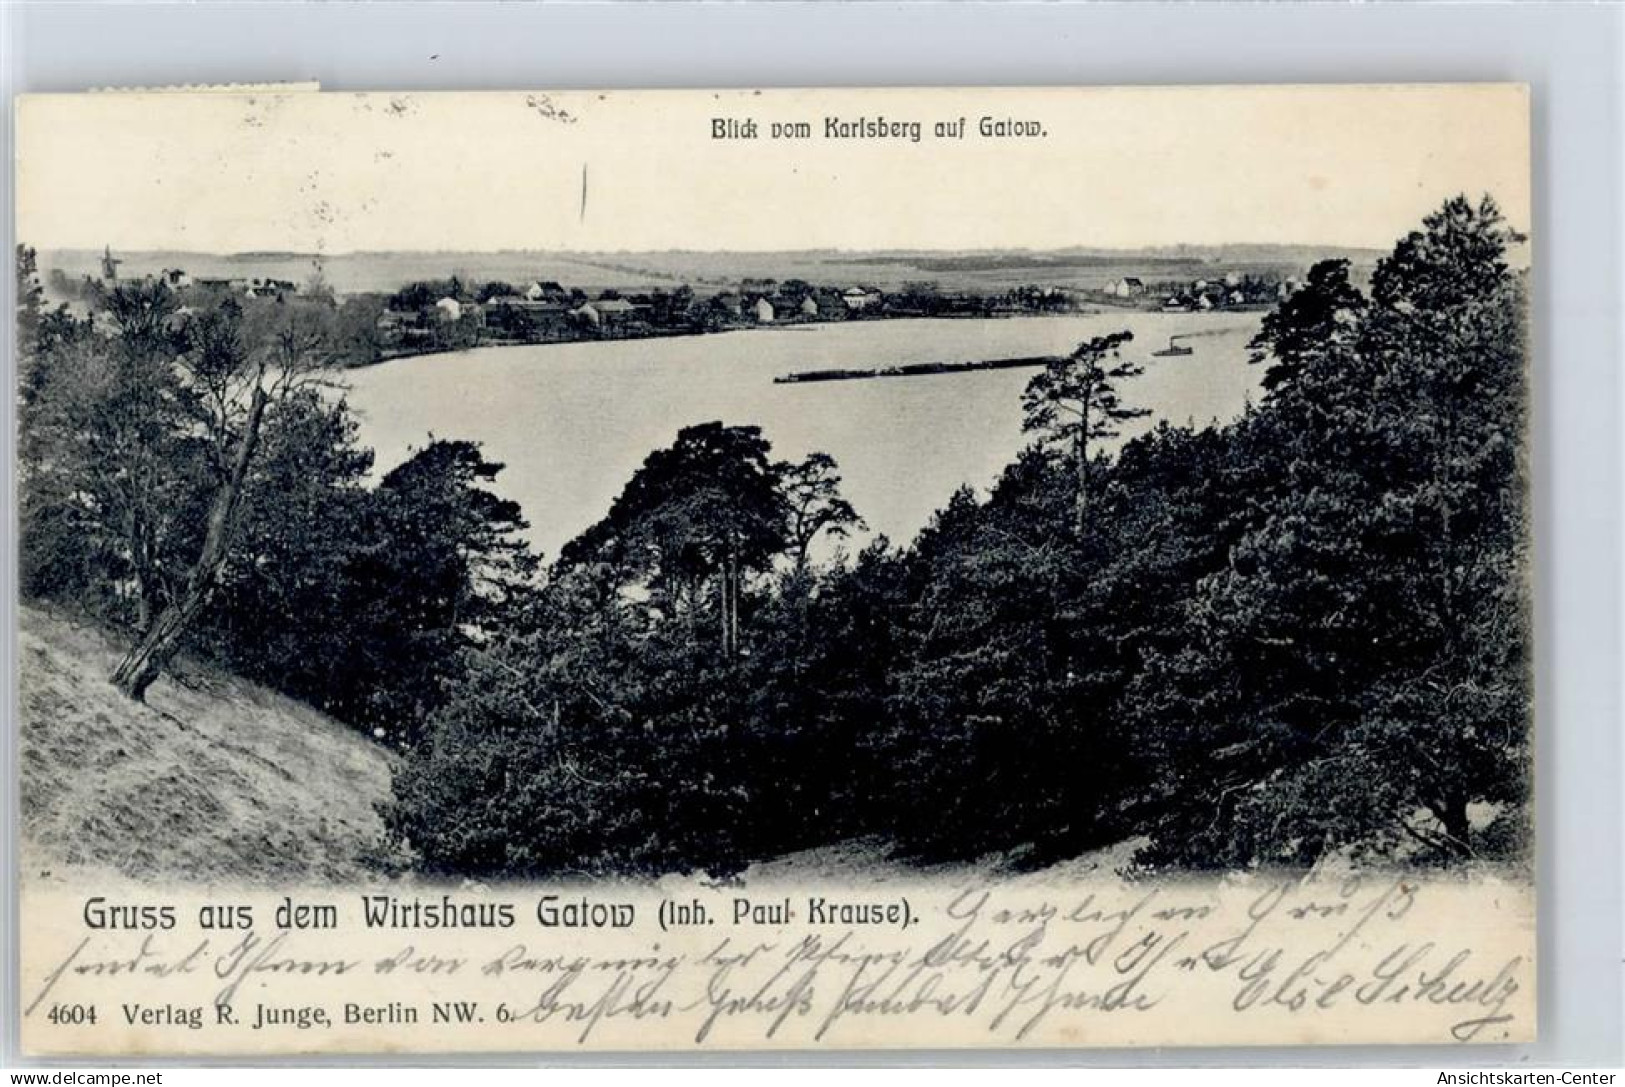 Blick vom Karlsberg auf Gatow.
Gruss aus dem Wirtshaus Gatow (Inh. Paul Krause). Herzlichen Gruß
sendet Ihnen von vergnügter Ihre Else Schulz
4604 Verlag R. Junge, Berlin NW. 6. besten Gruß sendet Ihnen
delcampe.net/PrinzVonPreussen
Ansichtskarten-Center